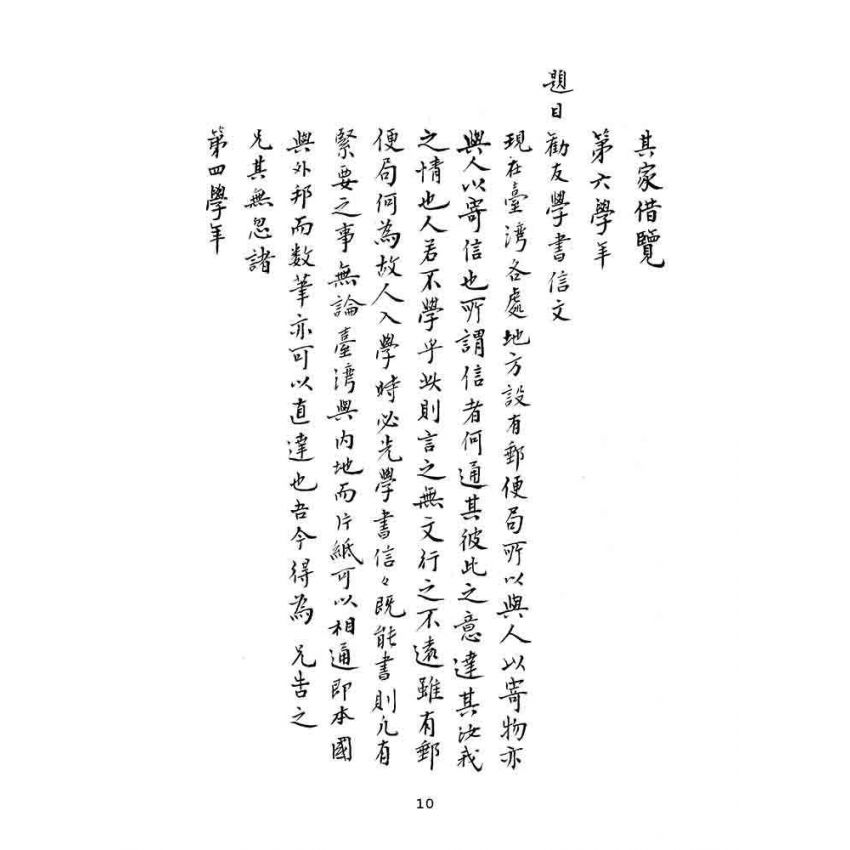 其家借覽
第六學年
題目勸友學書信文
現在臺灣各處地方設有郵便局所以與人以寄物亦
與人以寄信也所謂信者何通其彼此之意達其汝我
之情也人若不學乎此則言之無文行之不遠雖有郵
便局何為故人入學時必先學書信々既能書則凡有
緊要之事無論臺灣與內地而片紙可以相通即本國
與外邦而数筆亦可以直達也吾今得為兄告之
兄其無忽諸
第四學年
10